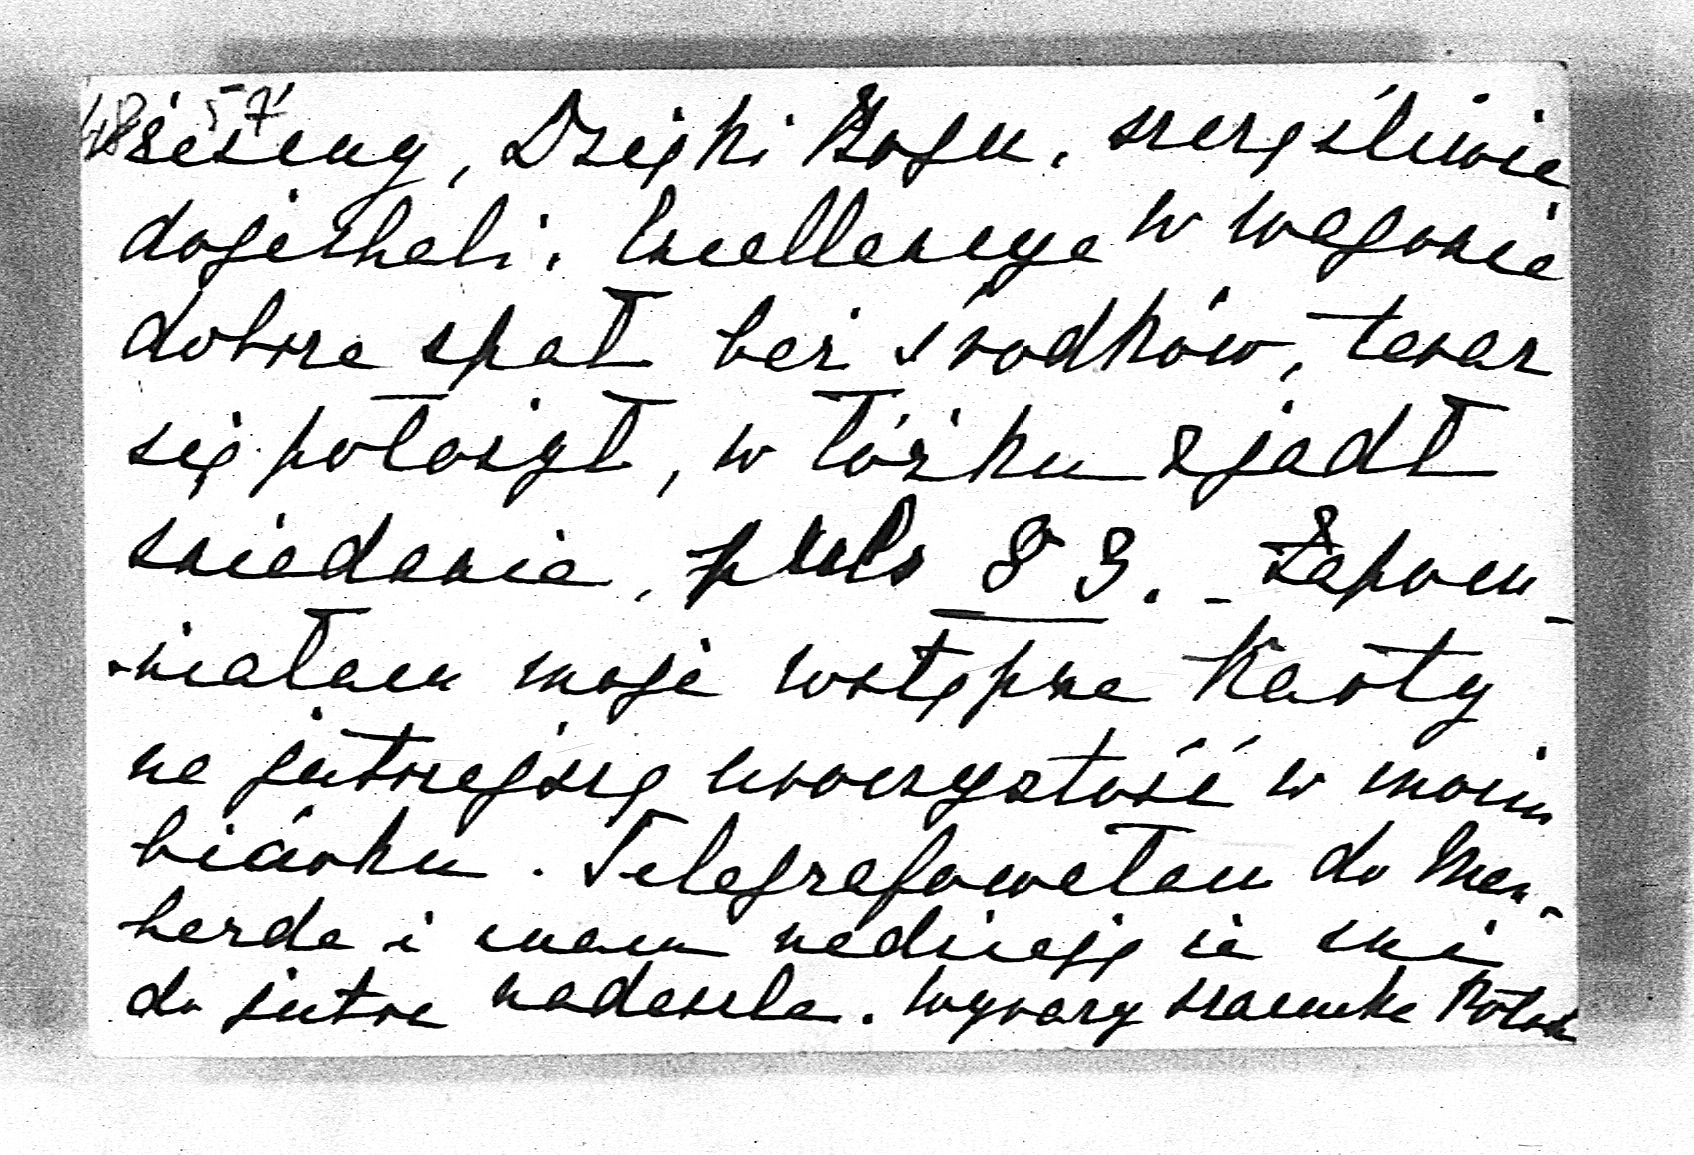 48 57
jesteśmy, Dzięki Bogu, szczęśliwie
dojechali. Excellencya w wagonie
dobrze spał bez środków, teraz
się położył, w łóżku zjadł
śniadanie, puls 83. - Zapom-
-niałam moje wstępne Karty
na jutrzejszą uroczystość w moim
biórku. Telegrafowałam do
i mam nadzieję że mi
do jutra nadeszle. Wyrazy szacunku